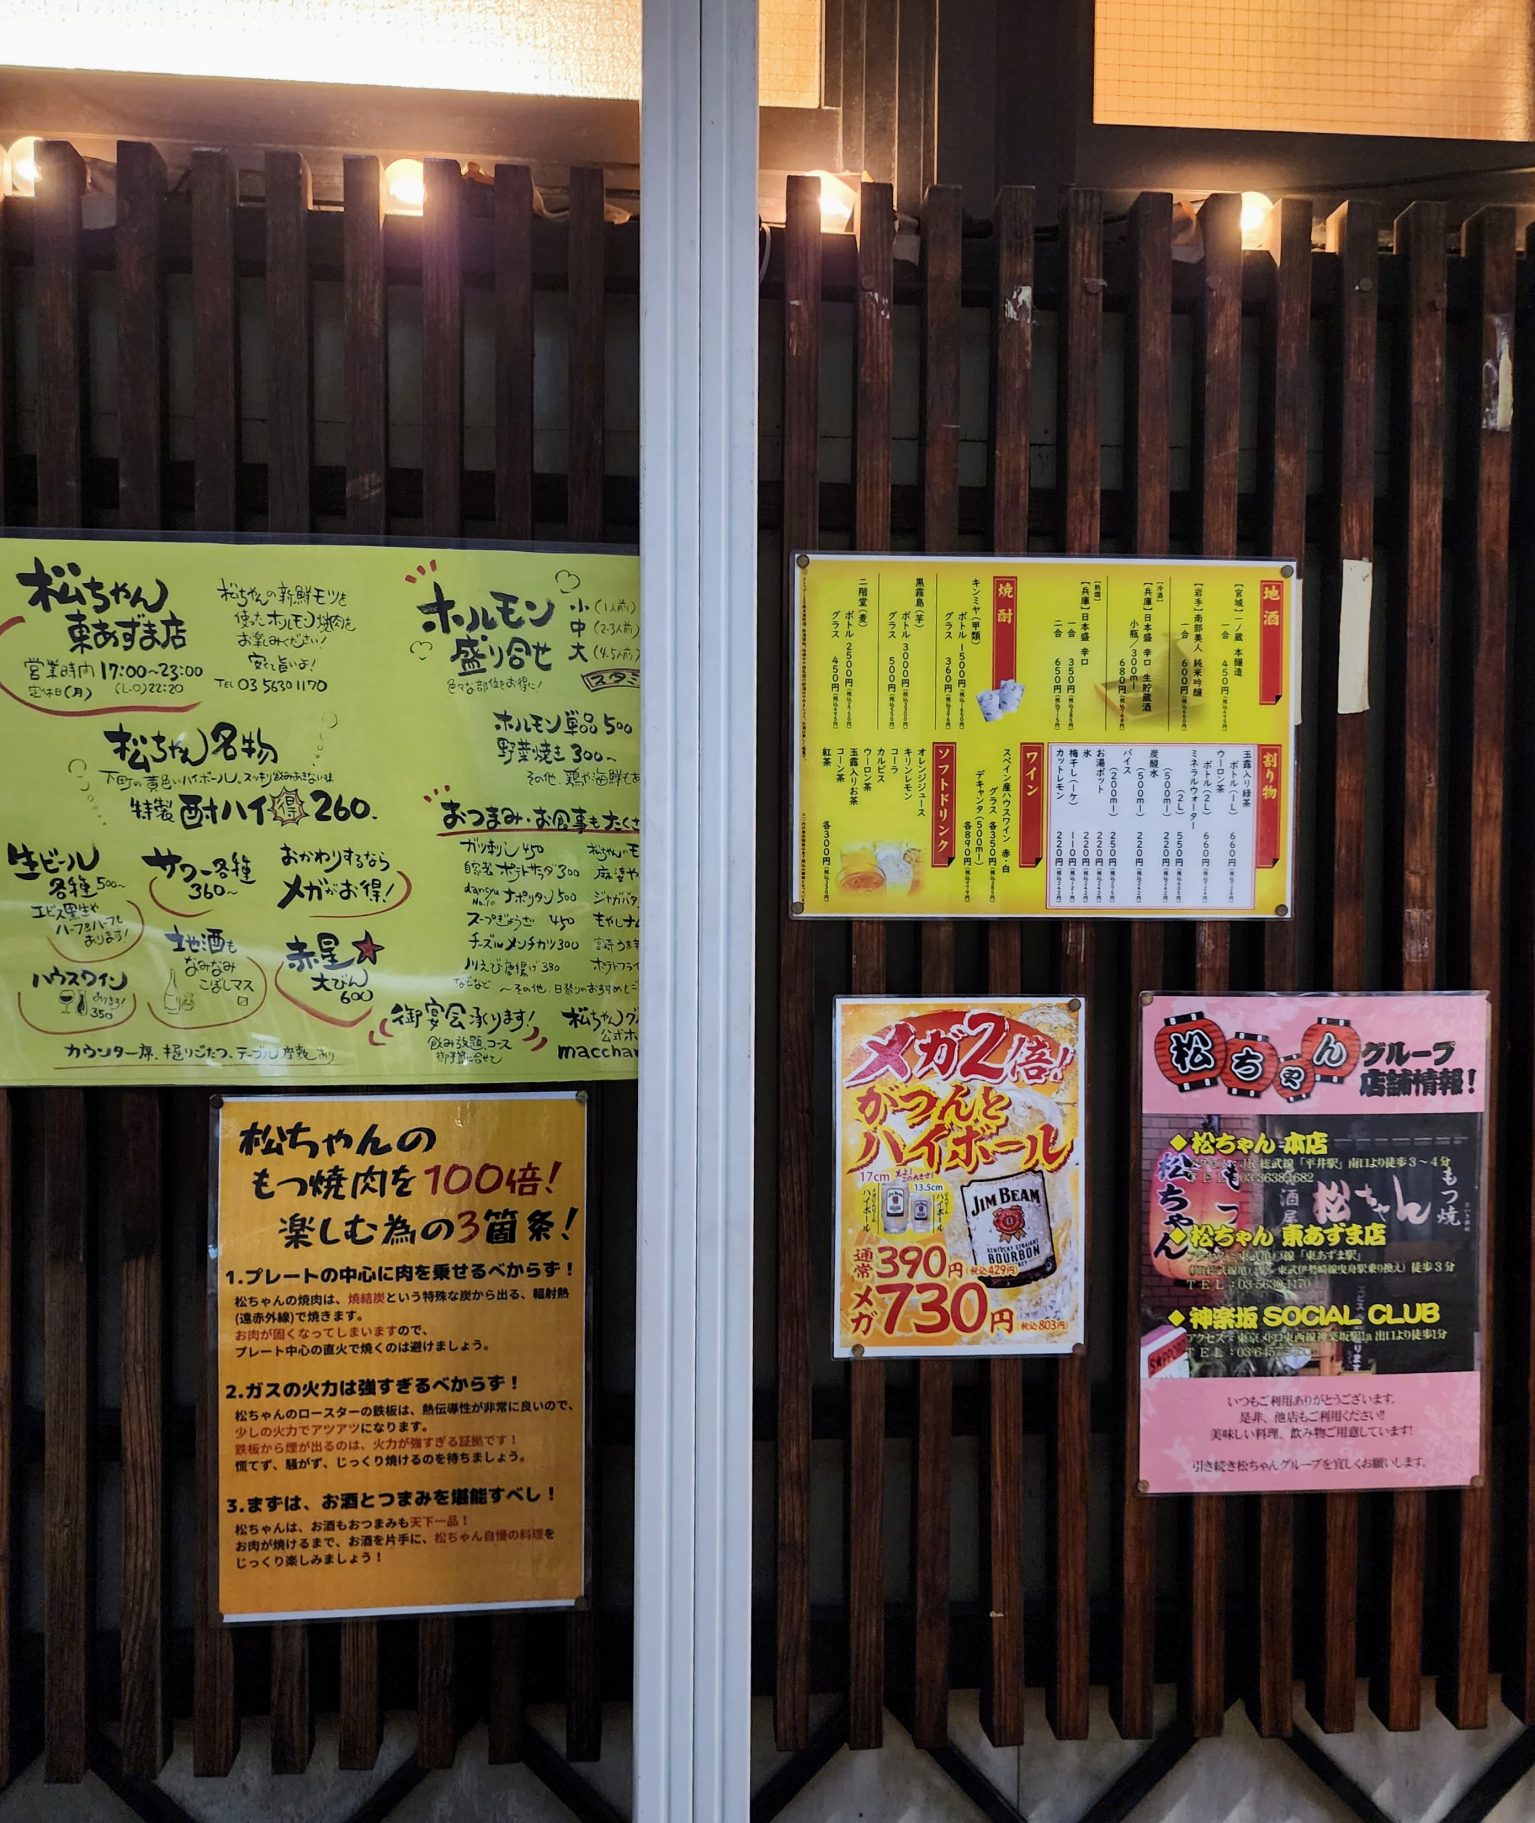 松ちゃん
東あずま店
営業時間 17:00~23:00
定休日(月) (L.O)22:20
松ちゃんの新鮮モツを
使ったホルモン焼肉を
お楽しみください!
安くて旨いよ!
TEL 03 5630 1170
松ちゃん名物
下町の黄色いハイボール。スッキリ飲みあきない味
特製 酎ハイ 得 260.
生ビール
各種 500~
エビス黒生や
ハーフ&ハーフも
あります!
サワー各種
360~
おかわりするなら
メガがお得!
地酒も
なみなみ
こぼしマス
赤星★
大びん
600
ハウスワイン
あります!
350
カウンター席、掘りごたつ、テーブル座敷あり
ホルモン
盛り合せ
色々な部位をお得に!
小(1人前)
中(2-3人前)
大(4-5人前)
スタミ
ホルモン単品 500
野菜焼き 300~
その他、鶏や海鮮もあ
おつまみ・お食事もたくさ
ガツ刺し 450
自家製 ポテトサラダ 300
ナポリタン 500
スープぎょうざ 450
チーズinメンチカツ 300
川えび唐揚げ 380
などなど ~その他、日替りのおすすめも
松ちゃんのモ
麻婆や
ジャガバタ
もやしナム
ポテトフライ
御宴会承ります!
飲み放題コース
御予算に合せて
松ちゃんグル
公式ホ
macchan
松ちゃんの
もつ焼肉を100倍!
楽しむ為の3箇条!
1.プレートの中心に肉を乗せるべからず!
松ちゃんの焼肉は、焼結炭という特殊な炭から出る、輻射熱
(遠赤外線)で焼きます。
お肉が固くなってしまいますので、
プレート中心の直火で焼くのは避けましょう。
2.ガスの火力は強すぎるべからず!
松ちゃんのロースターの鉄板は、熱伝導性が非常に良いので、
少しの火力でアツアツになります。
鉄板から煙が出るのは、火力が強すぎる証拠です!
慌てず、騒がず、じっくり焼けるのを待ちましょう。
3.まずは、お酒とつまみを堪能すべし!
松ちゃんは、お酒もおつまみも天下一品!
お肉が焼けるまで、お酒を片手に、松ちゃん自慢の料理を
じっくり楽しみましょう!
地酒
【宮城】一ノ蔵 本醸造
一合 450円(税込495円)
【岩手】南部美人 純米吟醸
一合 600円(税込660円)
【冷酒】
【兵庫】日本盛 辛口 生貯蔵酒
小瓶/300ml 680円(税込748円)
【熱燗】
【兵庫】日本盛 辛口
一合 350円(税込385円)
二合 650円(税込715円)
焼酎
キンミヤ(甲類)
ボトル 1500円(税込1650円)
グラス 360円(税込396円)
黒霧島(芋)
ボトル 3000円(税込3300円)
グラス 500円(税込550円)
二階堂(麦)
ボトル 2500円(税込2750円)
グラス 450円(税込495円)
割り物
玉露入り緑茶
ボトル(1L) 660円(税込726円)
ウーロン茶
ボトル(2L) 660円(税込726円)
ミネラルウォーター
(2L) 550円(税込605円)
(500ml) 220円(税込242円)
炭酸水
(500ml) 220円(税込242円)
バイス
(200ml) 250円(税込275円)
お湯ポット 220円(税込242円)
氷 220円(税込242円)
梅干し(1ケ) 110円(税込121円)
カットレモン 220円(税込242円)
ワイン
スペイン産ハウスワイン 赤・白
グラス 各350円(税込385円)
デキャンタ(500ml)
各890円(税込979円)
ソフトドリンク
オレンジジュース
キリンレモン
コーラ
カルピス
ウーロン茶
玉露入りお茶
コーン茶
紅茶
各300円(税込330円)
メガ2倍!
がつんと
ハイボール
17cm
13.5cm
JIM BEAM
KENTUCKY STRAIGHT
BOURBON
通常390円(税込429円)
メガ730円(税込803円)
松ちゃん グループ
店舗情報!
◆松ちゃん 本店
アクセス:JR 総武線「平井駅」南口より徒歩3~4分
◆松ちゃん 東あずま店
アクセス:東武亀戸線「東あずま駅」
(東武伊勢崎線曳舟駅乗り換え)徒歩3分
TEL:03-5630-1170
◆神楽坂 SOCIAL CLUB
アクセス:東京メトロ東西線神楽坂駅1a 出口より徒歩1分
松ちゃん
もつ焼
いつもご利用ありがとうございます。
是非、他店もご利用ください!!
美味しい料理、飲み物ご用意しています!
引き続き松ちゃんグループを宜しくお願いします。